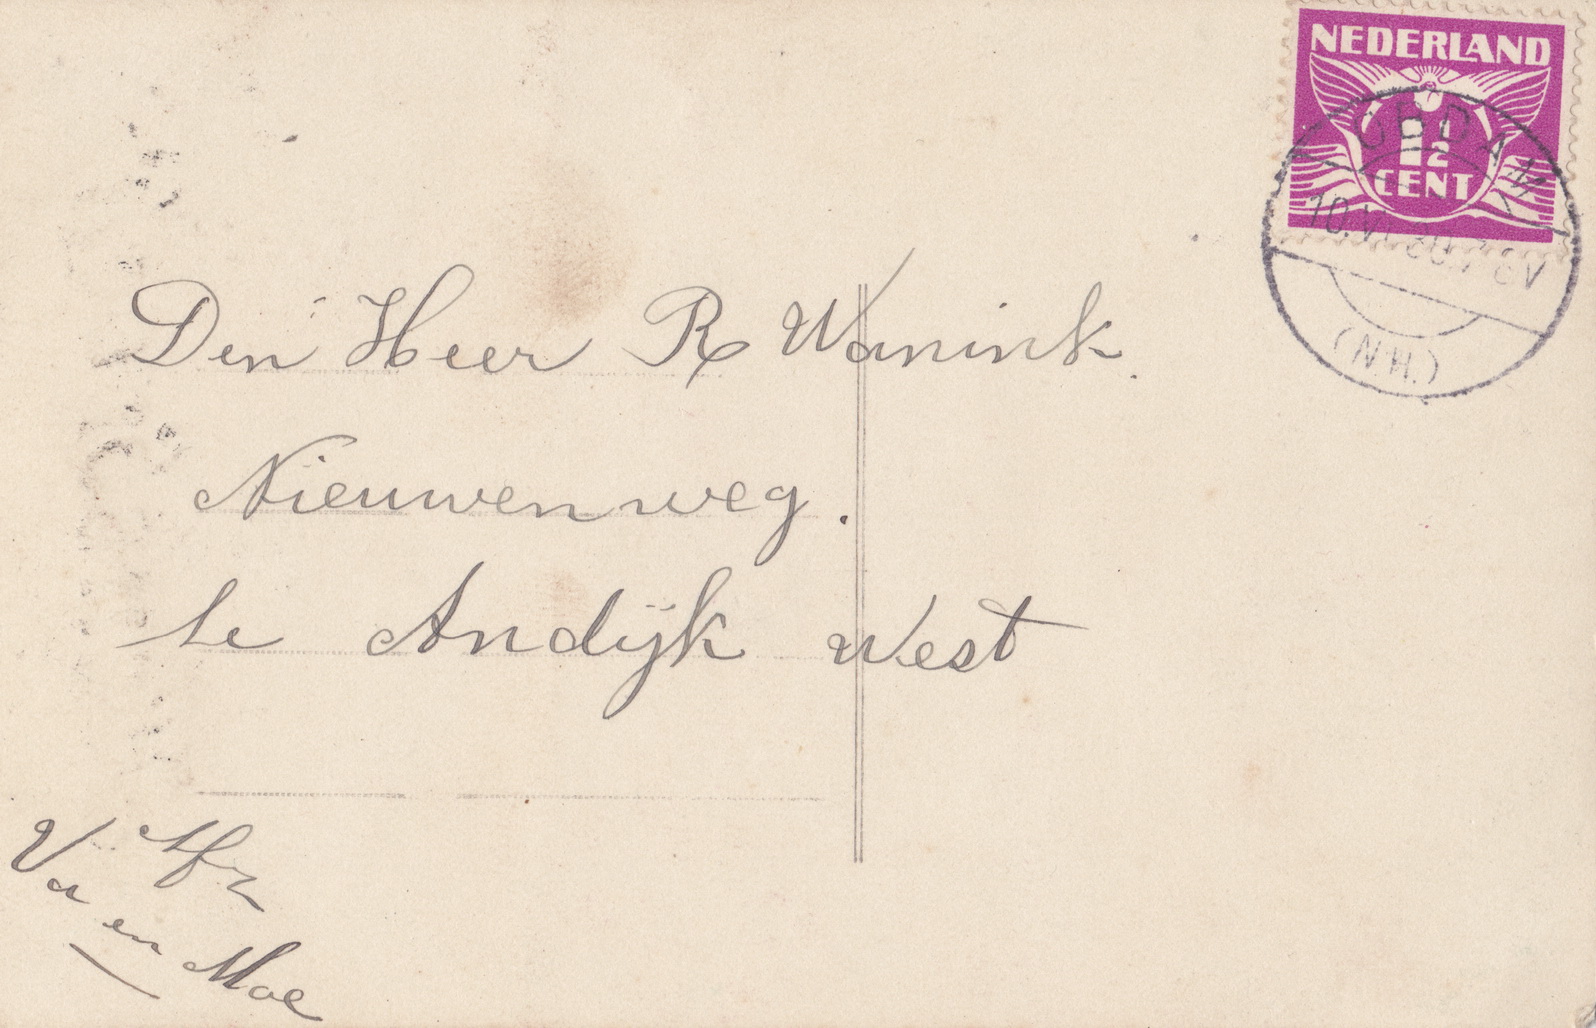 NEDERLAND
1½
CENT
OBDAM
10.V
(N.H.)
Den Heer R Wanink.
Nieuwenweg.
te Andijk West
Afz
Va en Moe